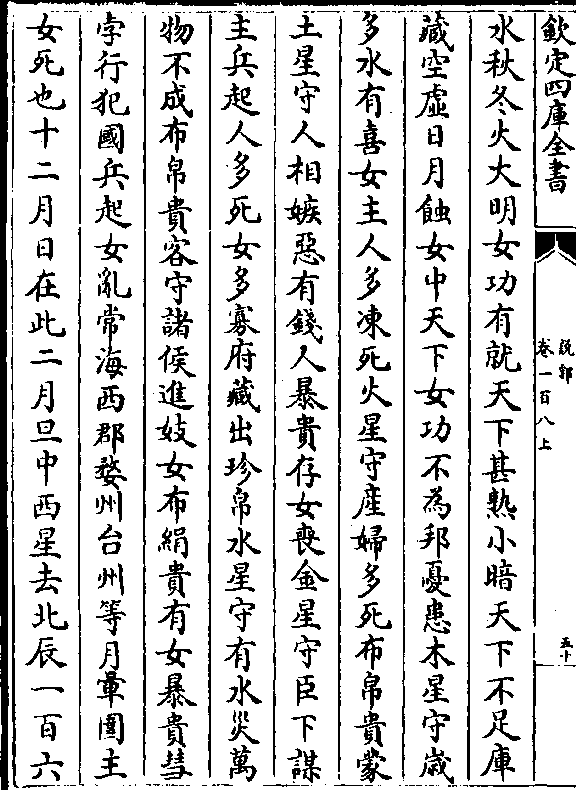 欽定四庫全書
説郛
卷一百八上
五十
水秋冬火大明女功有就天下甚熟小暗天下不足庫
藏空虛日月蝕女中天下女功不為邦憂患木星守歲
多水有喜女主人多凍死火星守産婦多死布帛貴蒙
土星守人相嫉惡有錢人暴貴存女喪金星守臣下謀
主兵起人多死女多寡府藏出珍帛水星守有水災萬
物不成布帛貴客守諸侯進妓女布絹貴有女暴貴彗
孛行犯國兵起女亂常海西郡婺州台州等月暈圍主
女死也十二月日在此二月旦中西星去北辰一百六